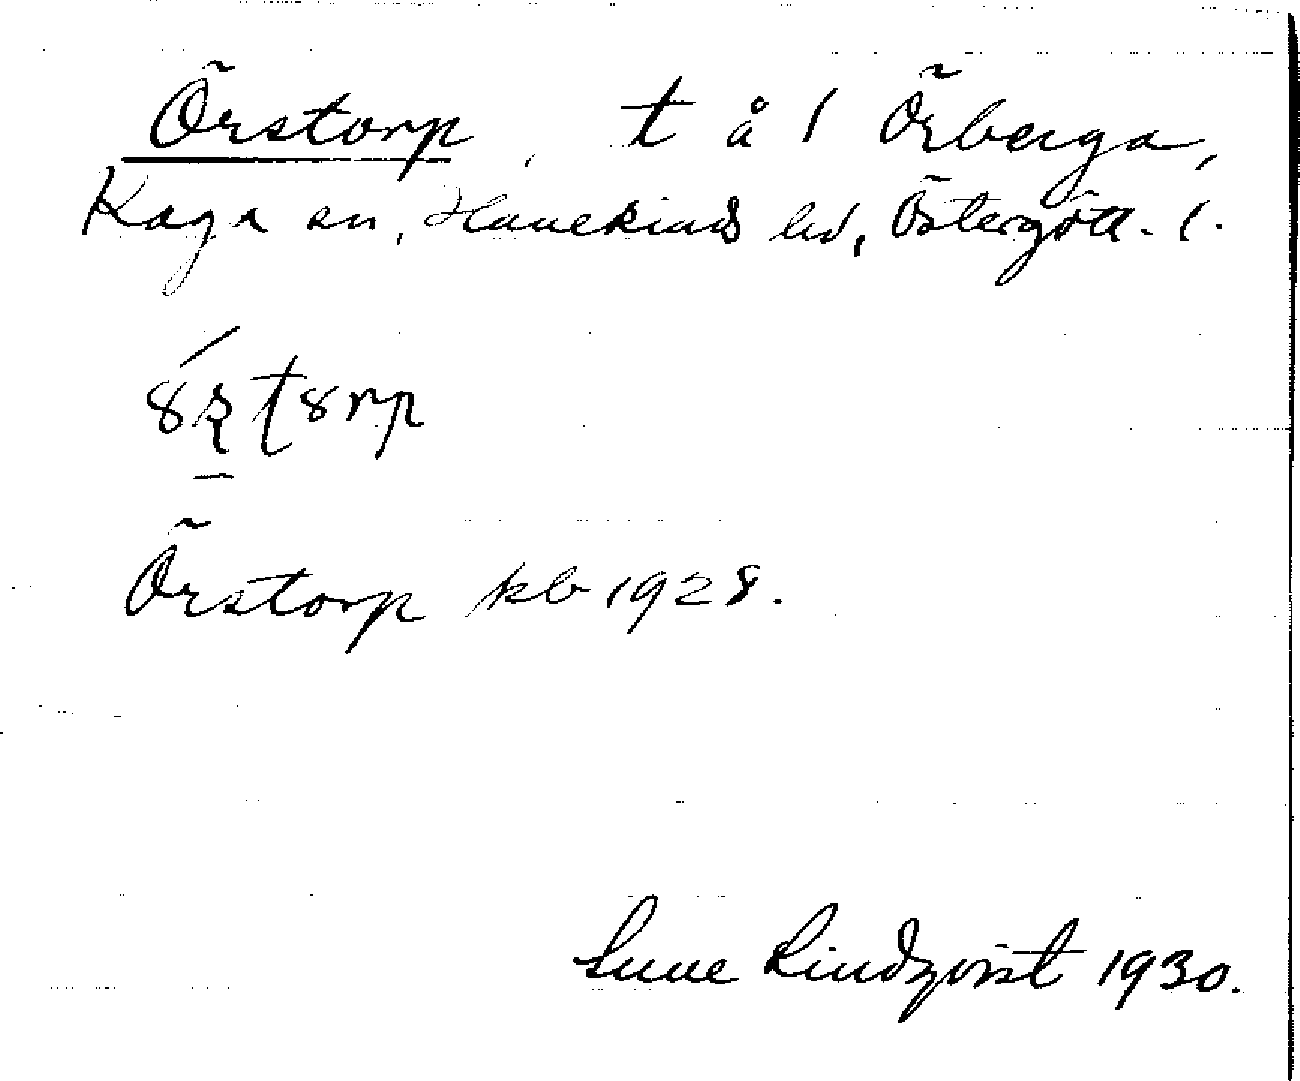 Örstorp, t å 1 Örberga,
Kaga sn, Hanekinds hd, Östergötl. l.
Örstorp kb 1928.
Sune Lindqvist 1930.